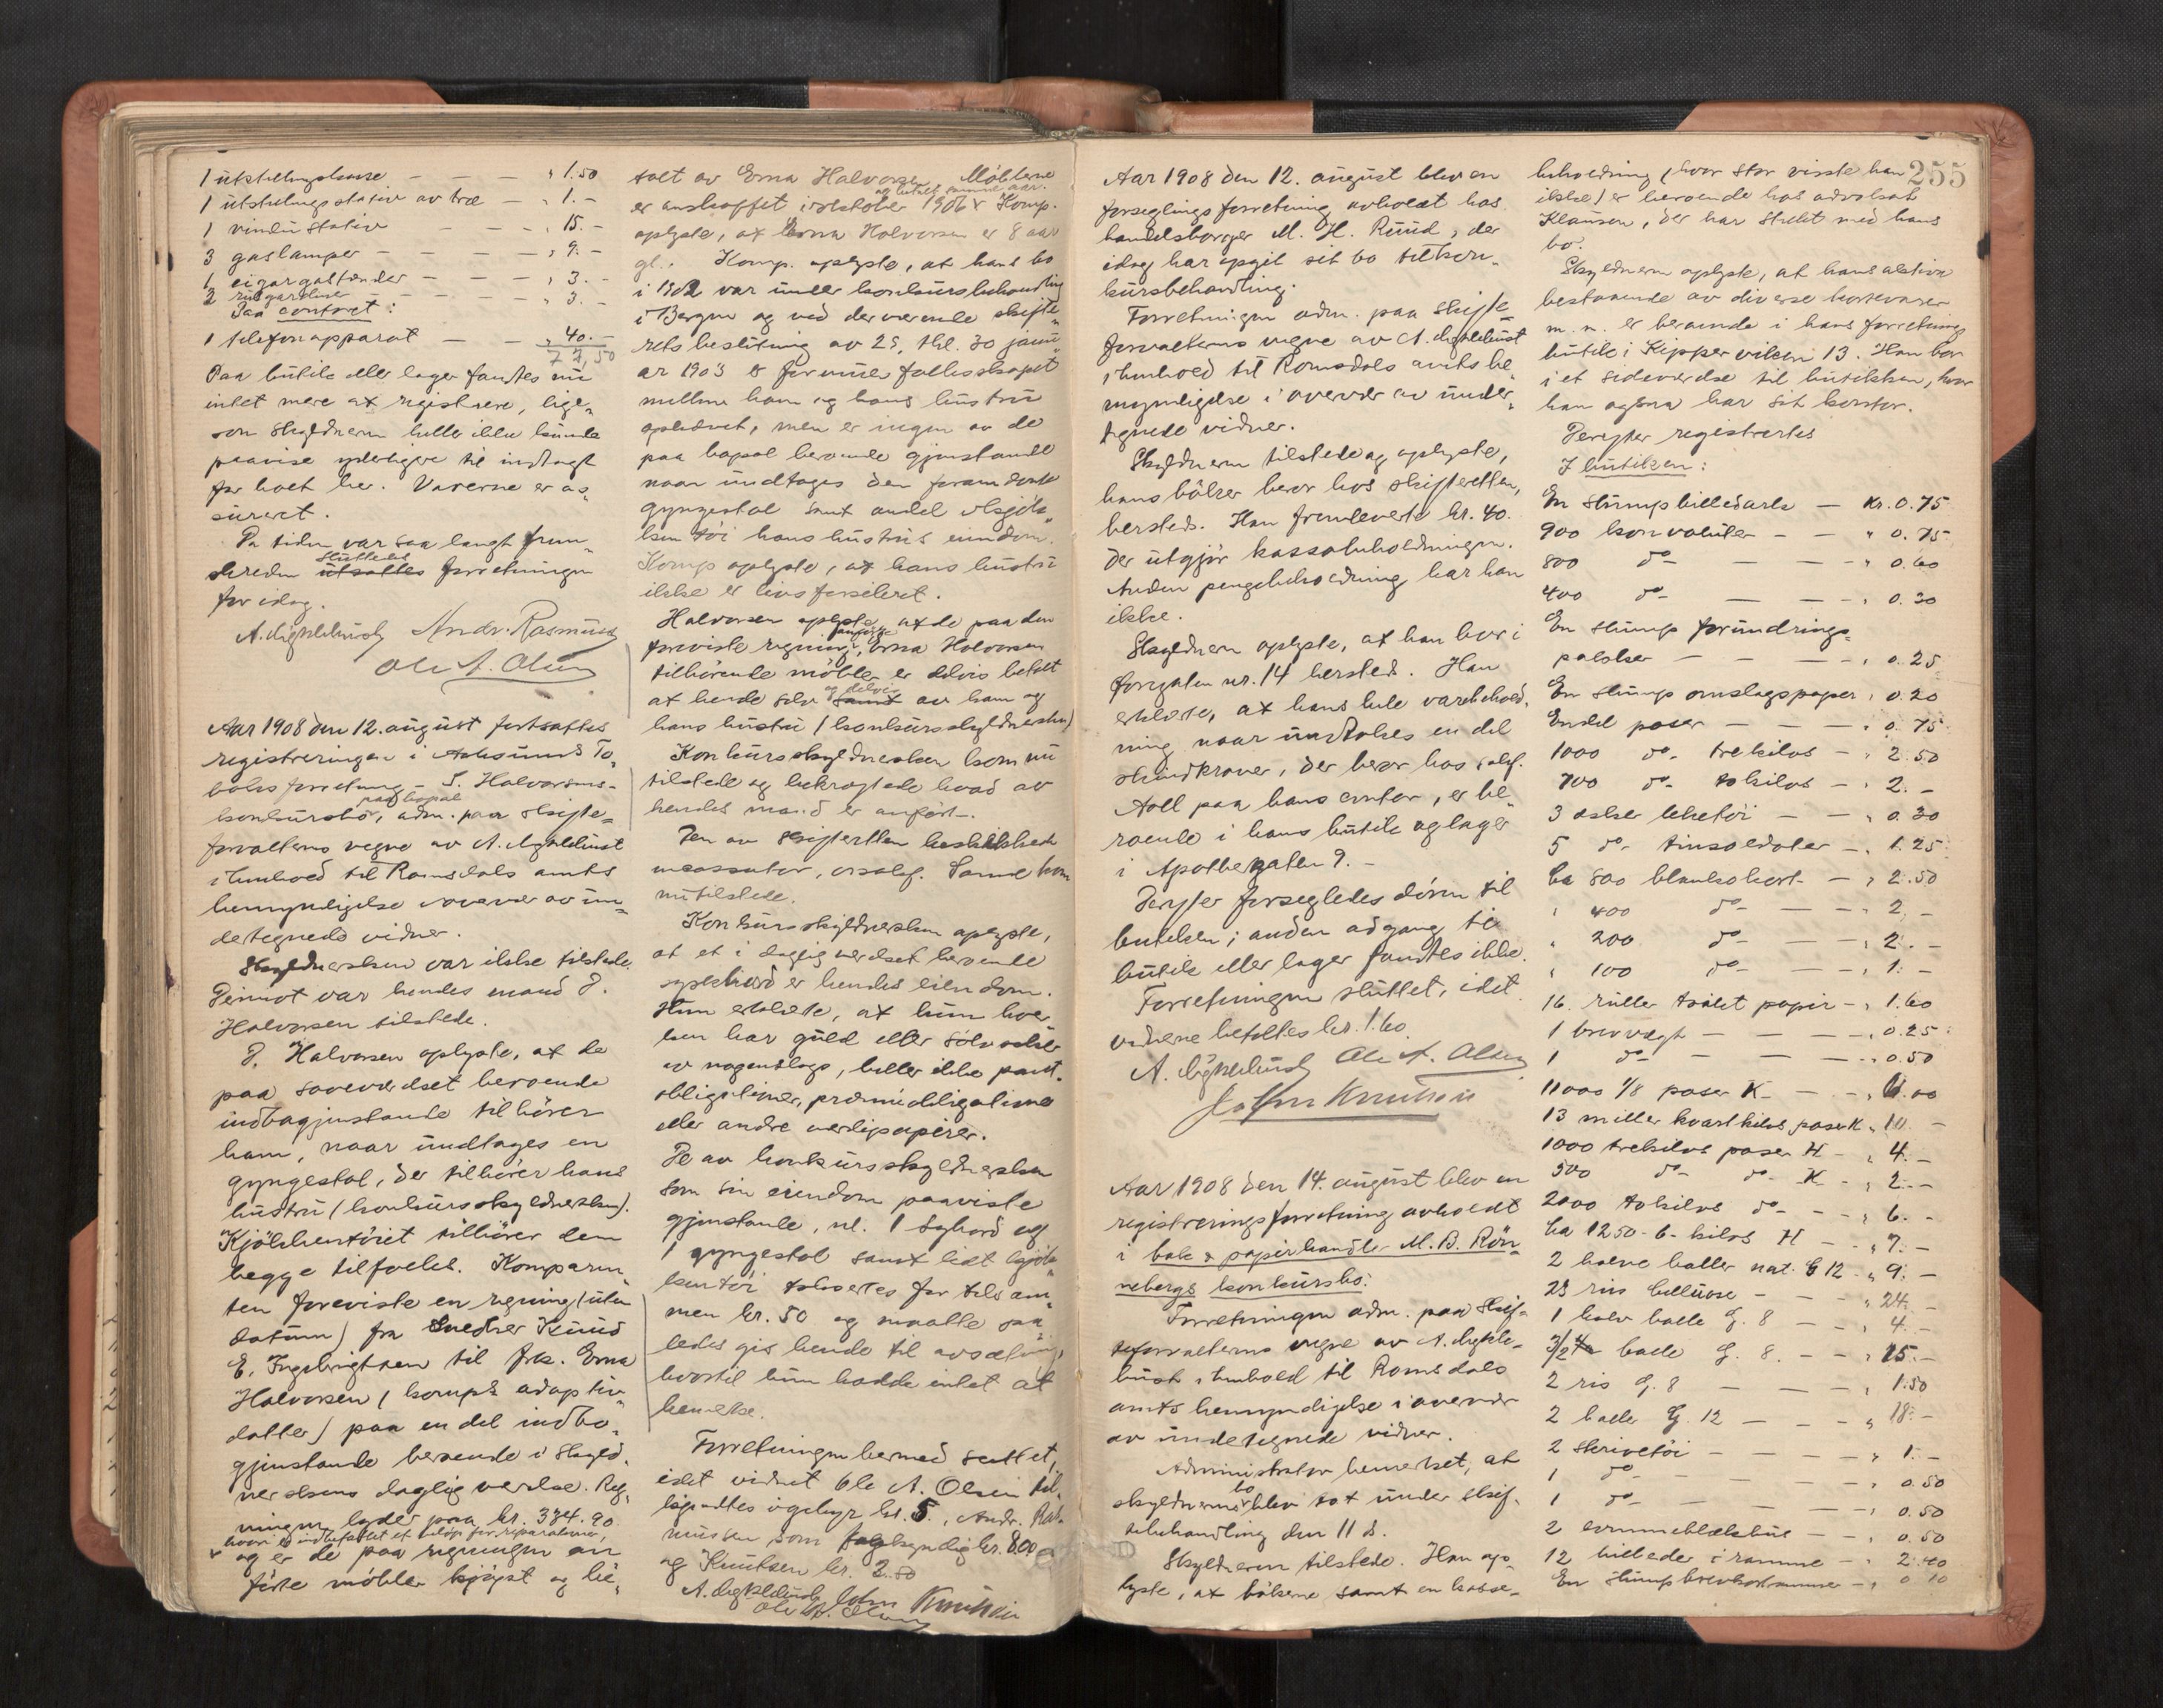 1 utstillingskasse — — — " 1.50
1 utstillingsstativ av træ — " 1.-
1 vindustativ — — — " 15.-
3 gaslamper — — — — " 9.-
1 cigargastænder — — — " 3.-
2 rulgardiner — — — — " 3.-
Paa contoret:
1 telefonapparat — — " 40.-
77,50
Paa butik eller lager fantes nu
intet mere at registrere, lige-
som skyldneren heller ikke kunde
paavise yderligere til indtægt
for boet her. Varerne er as-
sureret.
Da tiden var saa langt frem-
skreden sluttedes utsattes forretningen
for idag.
A. Andr. Rasmussen
Ole A. Olsen
Aar 1908 den 12. august fortsattes
registreringen i Aalesunds To-
baksforretning S. Halvorsens
konkursbo, paa bopæl adm. paa skifte-
forvalterens vegne av A.
i henhold til Romsdals amts
bemyndigelse i overvær av un-
dertegnede vidner.
Skyldnersken var ikke tilstede.
Derimot var hendes mand P.
Halvorsen tilstede.
P. Halvorsen oplyste, at de
paa soveværelset beroende
indbogjenstande tilhører
ham, naar undtages en
gyngestol, der tilhører hans
hustru (konkursskyldnersken).
Kjøkkentøiet tilhører dem
begge tilfælles. Komparen-
ten foreviste en regning (uten
datum) fra snedker Knud
E. Ingebrigtsen til frk. Erna
Halvorsen (komp's adoptiv-
datter) paa en del indbo-
gjenstande beroende i skyld-
nerskens daglig værelse. Reg-
ningen lyder paa kr. 334.90
hvori er indbefattet et beløp for reparationer,
og er de paa regningen an-
førte møbler kjøpt og be-
talt av Erna Halvorsen. Møblerne
er anskaffet i oktober 1906 og betalt samme aar. Komp.
oplyste, at Erna Halvorsen er 8 aar
gl. Komp. oplyste, at hans bo
i 1902 var under konkursbehandling
i Bergen og ved derværende skifte-
rets beslutning av 25, thl. 30 janu-
ar 1903 er formuesfællesskapet
mellem ham og hans hustru
ophævet, men er ingen av de
paa bopæl beroende gjenstande
naar undtages den foran nævnte
gyngestol samt andel i kjøk-
kentøi hans hustrus eiendom.
Komp. oplyste, at hans hustru
ikke er livsforsikret.
Halvorsen oplyste, at de paa den
foreviste regning anførte Erna Halvorsen
tilhørende møbler er delvis betalt
av hende selv og delvis samt av ham og
hans hustru (konkursskyldnersken)
Konkursskyldnersken kom nu
tilstede og bekræftede hvad av
hendes mand er anført.
Den av skifteretten beskikkede
incassator, orsakf. Sanne kom
nu tilstede.
Konkursskyldnersken oplyste,
at et i dagligværelset beroende
sybord er hendes eiendom.
Hun erklærte, at hun hver-
ken har guld eller sølvsaker
av nogenslags, heller ikke pant-
obligationer, præmieobligationer
eller andre værdipapirer.
De av konkursskyldnersken
som sin eiendom paaviste
gjenstande, nl. 1 sybord og
1 gyngestol samt lidt kjøk-
kentøi taksertes for tilsam-
men kr. 50 og maatte saa-
ledes gis hende til avsætning,
hvortil hun hadde intet at
bemerke.
Forretningen hermed sluttet,
idet vidnet Ole A. Olsen til-
kjendtes i gebyr kr. 5., Andr. Ras-
mussen som fagkyndig kr. 8.00
og Knutsen kr. 2.50
A. John Knutsen
Ole A. Olsen
Aar 1908 den 12. august blev en
forseglingsforretning avholdt hos
handelsborger M. H. Ruud, der
idag har opgit sit bo til kon-
kursbehandling.
Forretningen adm. paa skifte-
forvalterens vegne av A.
i henhold til Romsdals amts be-
myndigelse i overvær av under-
tegnede vidner.
Skyldneren tilstede og oplyste,
hans bøker beror hos skifteretten,
hersteds. Han fremleverte kr. 40.
der utgjør kassabeholdningen.
Anden pengebeholdning har han
ikke.
Skyldneren oplyste, at han bor i
Storgaten nr. 14 hersteds. Han
erklærte, at hans hele varebehold-
ning naar undtakes en del
skindkraver, der beror hos sakf.
Aall paa hans contor, er be-
roende i hans butik og lager
i Apothekergaten 9.-
Derefter forsegledes døren til
butikken; anden adgang til
butik eller lager fandtes ikke.
Forretningen sluttet, idet
vidnerne betaltes kr. 1.60
A. Ole A. Olsen
John Knutsen
Aar 1908 den 14. august blev en
registreringsforretning avholdt
i bok & papirhandler M. B. Røn-
nebergs konkursbo.
Forretningen adm. paa skif-
teforvalterens vegne av A.
i henhold til Romsdals
amts bemyndigelse i overvær
av undertegnede vidner.
Administrator bemerket, at
skyldnerens bo blev tat under skif-
tebehandling den 11 d.
Skyldneren tilstede. Han op-
lyste, at bøkerne samt en kasse-
255
beholdning (hvor stor visste han
ikke) er beroende hos advokat
Klausen, der har stelet med hans
bo.
Skyldneren oplyste, at hans aktiva
bestaaende av diverse kortevarer
m. m. er beroende i hans forretnings
butik i Kipperviken 13. Han bor
i et sideværelse til butikken, hvor
han ogsaa har sit kontor.
Derefter registrertes
I butiken:
En slump billedark — Kr. 0.75
900 konvolutter — — " 0.75
800 do — — — " 0.60
400 do — — — " 0.30
En slump forundrings-
pakker — — — " 0.25
En slump omslagspapir " 0.20
Endel poser — — — " 0.75
1000 do trekilos — " 2.50
700 do tokilos — " 2.-
3 æsker leketøi — — " 0.30
5 do tinsoldater — " 1.25
ca 800 blankokort — " 2.50
" 400 do — — " 2.-
" 200 do — — " 2.-
" 100 do — — " 1.-
16 ruller toilet papir — " 1.60
1 brevvegt — — — " 0.25
1 do — — — " 0.50
11000 1/8 poser K — —
13 miller kvartkilos poser K " 10.-
1000 trekilos poser H — " 4.-
500 do do K — " 2.-
2000 tokilos do — — " 6.-
ca 1250 6-kilos H — — " 7.-
2 halve baller nat. G 12 — " 9.-
23 ris cellulose — — " 24.-
1 halv balle G. 8 — — " 4.-
3/2 balle G. 8 — — " 15.-
2 ris G. 8 — — — " 1.50
2 balle G. 12 — — — " 18.-
2 skrivetøi — — — " 1.-
1 do — — — " 0.50
1 do — — — " 0.50
2 — — " 0.50
12 billeder i ramme — " 2.40
En slump — " 0.10